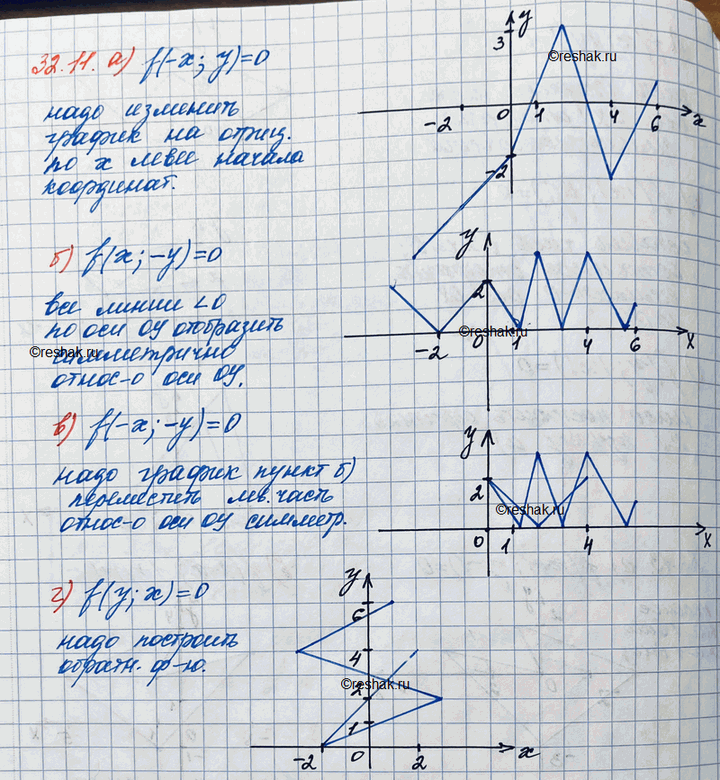 32.11. а) f(-x; y)=0
надо изменить
график на отриц.
по x левее начала
координат.
y
3
-2 0 1 4 6 x
-2
©reshak.ru
б) f(x; -y)=0
все линии <0
по оси OY отобразить
симметрично
относ-о оси OY.
©reshak.ru
y
2
-2 0 1 4 6 x
©reshak.ru
в) f(-x; -y)=0
надо график пункт б)
переместить лев. часть
относ-о оси OY симметр.
y
2
0 1 4 x
©reshak.ru
г) f(y; x)=0
надо построить
обратн. ф-ю.
y
6
4
2
1
-2 0 2 x
©reshak.ru